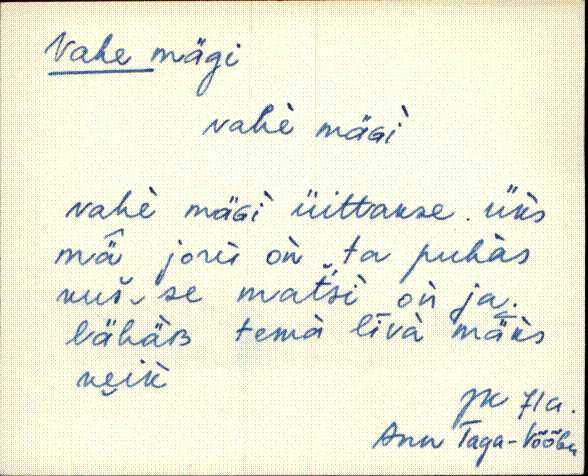 Vahe mägi
vahè mäGì
vahè mäGì üittakse. üks
mâ joru òǹ, ta puhàs
se matsì òǹ ja.
lähäB temà līvà mäks
JK 71a.
Ann Taga-Võõbu